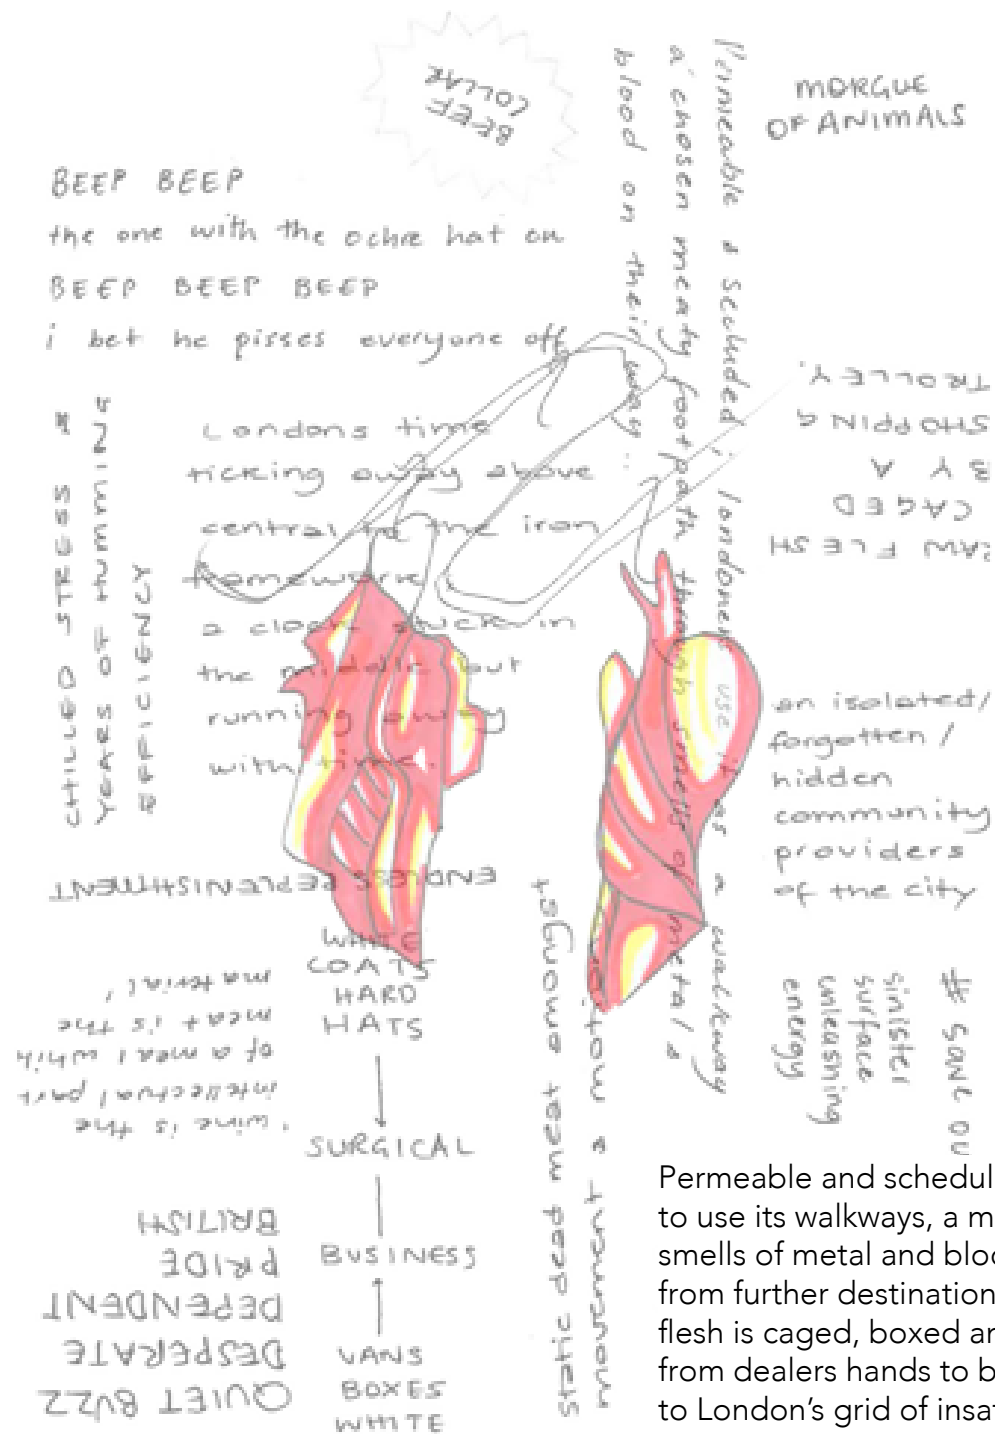 BEEF
COLLAR
MORGUE
OF ANIMALS
BEEP BEEP
the one with the ochre hat on
BEEP BEEP BEEP
i bet he pisses everyone off
Permeable & secluded, londoners use it as a walkway
a chosen meaty footpath through smells of metal &
blood on their way.
RAW FLESH
CAGED
BY A
SHOPPING
TROLLEY.
CHILLED STRESS &
YEARS OF HUMMING
EFFICIENCY
Londons time
ticking away above
central to the iron
framework
a clock stuck in
the middle but
running away
with time.
an isolated/
forgotten/
hidden
community
providers
of the city
ENDLESS REPLENISHMENT
WHITE
COATS
HARD
HATS
SURGICAL
BUSINESS
VANS
BOXES
WHITE
'wine is the
intellectual part
of a meal which
meat is the
material'
QUIET BUZZ
DESPERATE
DEPENDENT
PRIDE
BRITISH
movement & motion
static dead meat amongst
# SAVE OU
sinister
surface
unleashing
energy
Permeable and schedul
to use its walkways, a m
smells of metal and bloo
from further destination
flesh is caged, boxed an
from dealers hands to b
to London's grid of insat